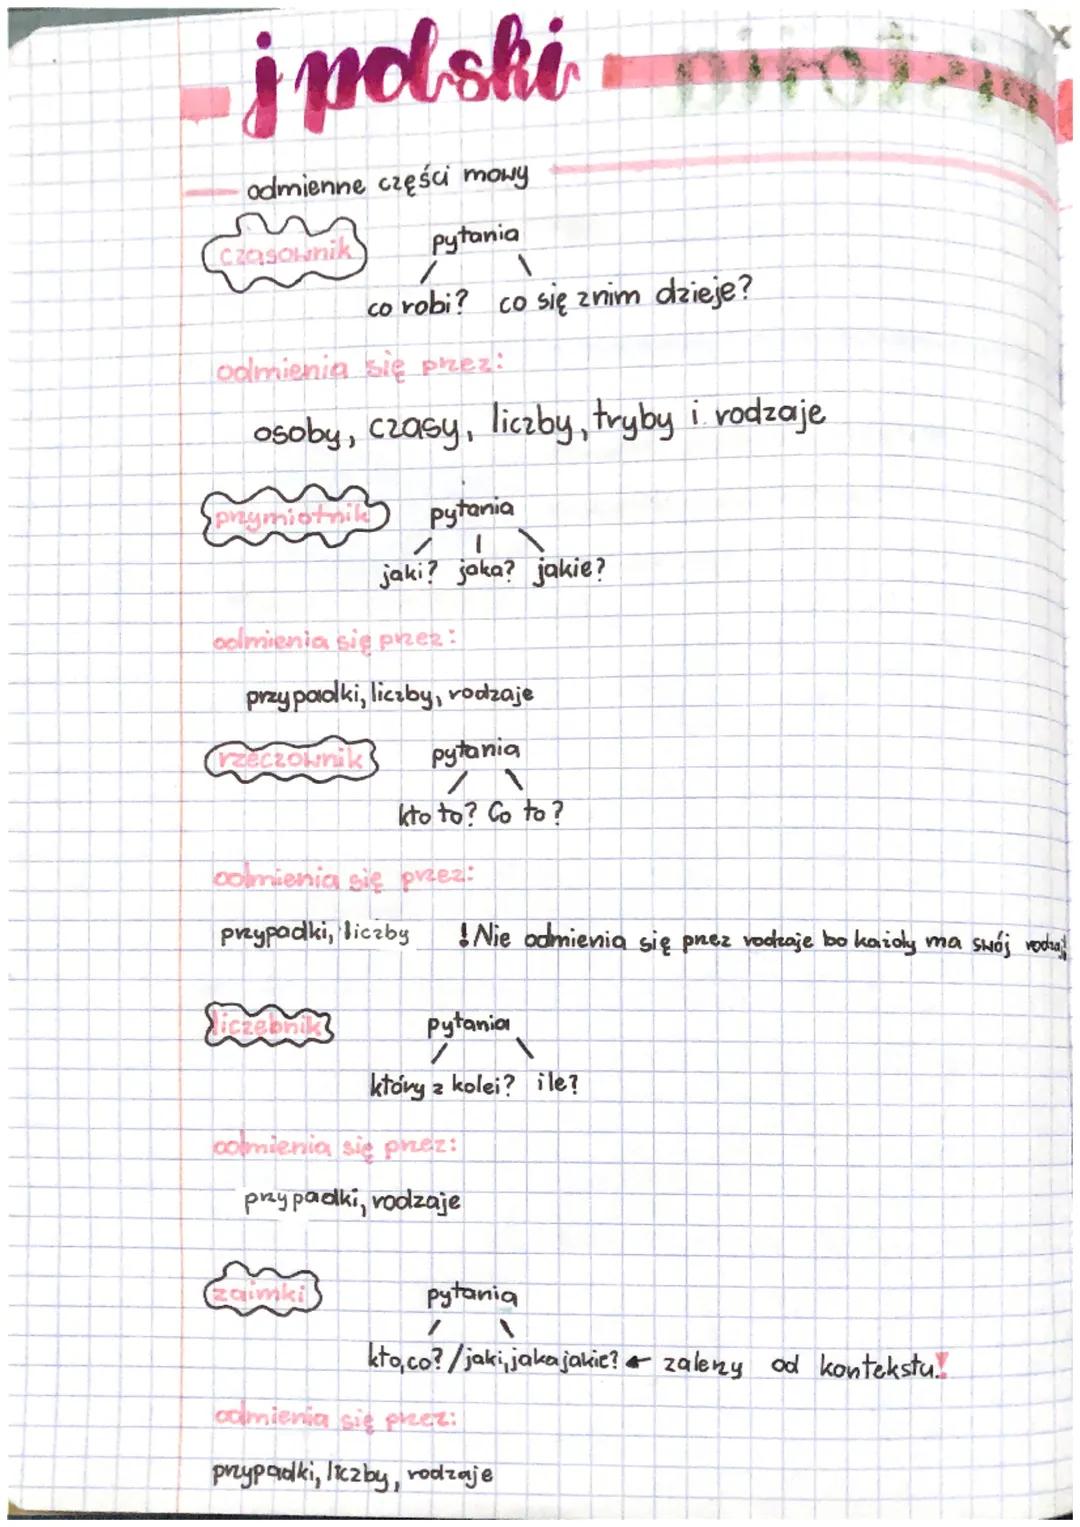 j polski
odmienne części mowy
czasownik pytania
co robi? co się znim dzieje?
odmienia się przez:
osoby, czasy, liczby, tryby i rodzaje
przymiotnik pytania
jaki? jaka? jakie?
odmienia się przez:
przypadki, liczby, rodzaje
rzeczownik pytania
kto to? Co to?
odmienia się przez:
przypadki, liczby ! Nie odmienia się przez rodzaje bo każdy ma swój rodzaj!
liczebnik pytania
który z kolei? ile?
odmienia się przez:
przypadki, rodzaje
zaimki pytania
kto, co? / jaki, jaka jakie? ← zależy od kontekstu!
odmienia się przez:
przypadki, liczby, rodzaje